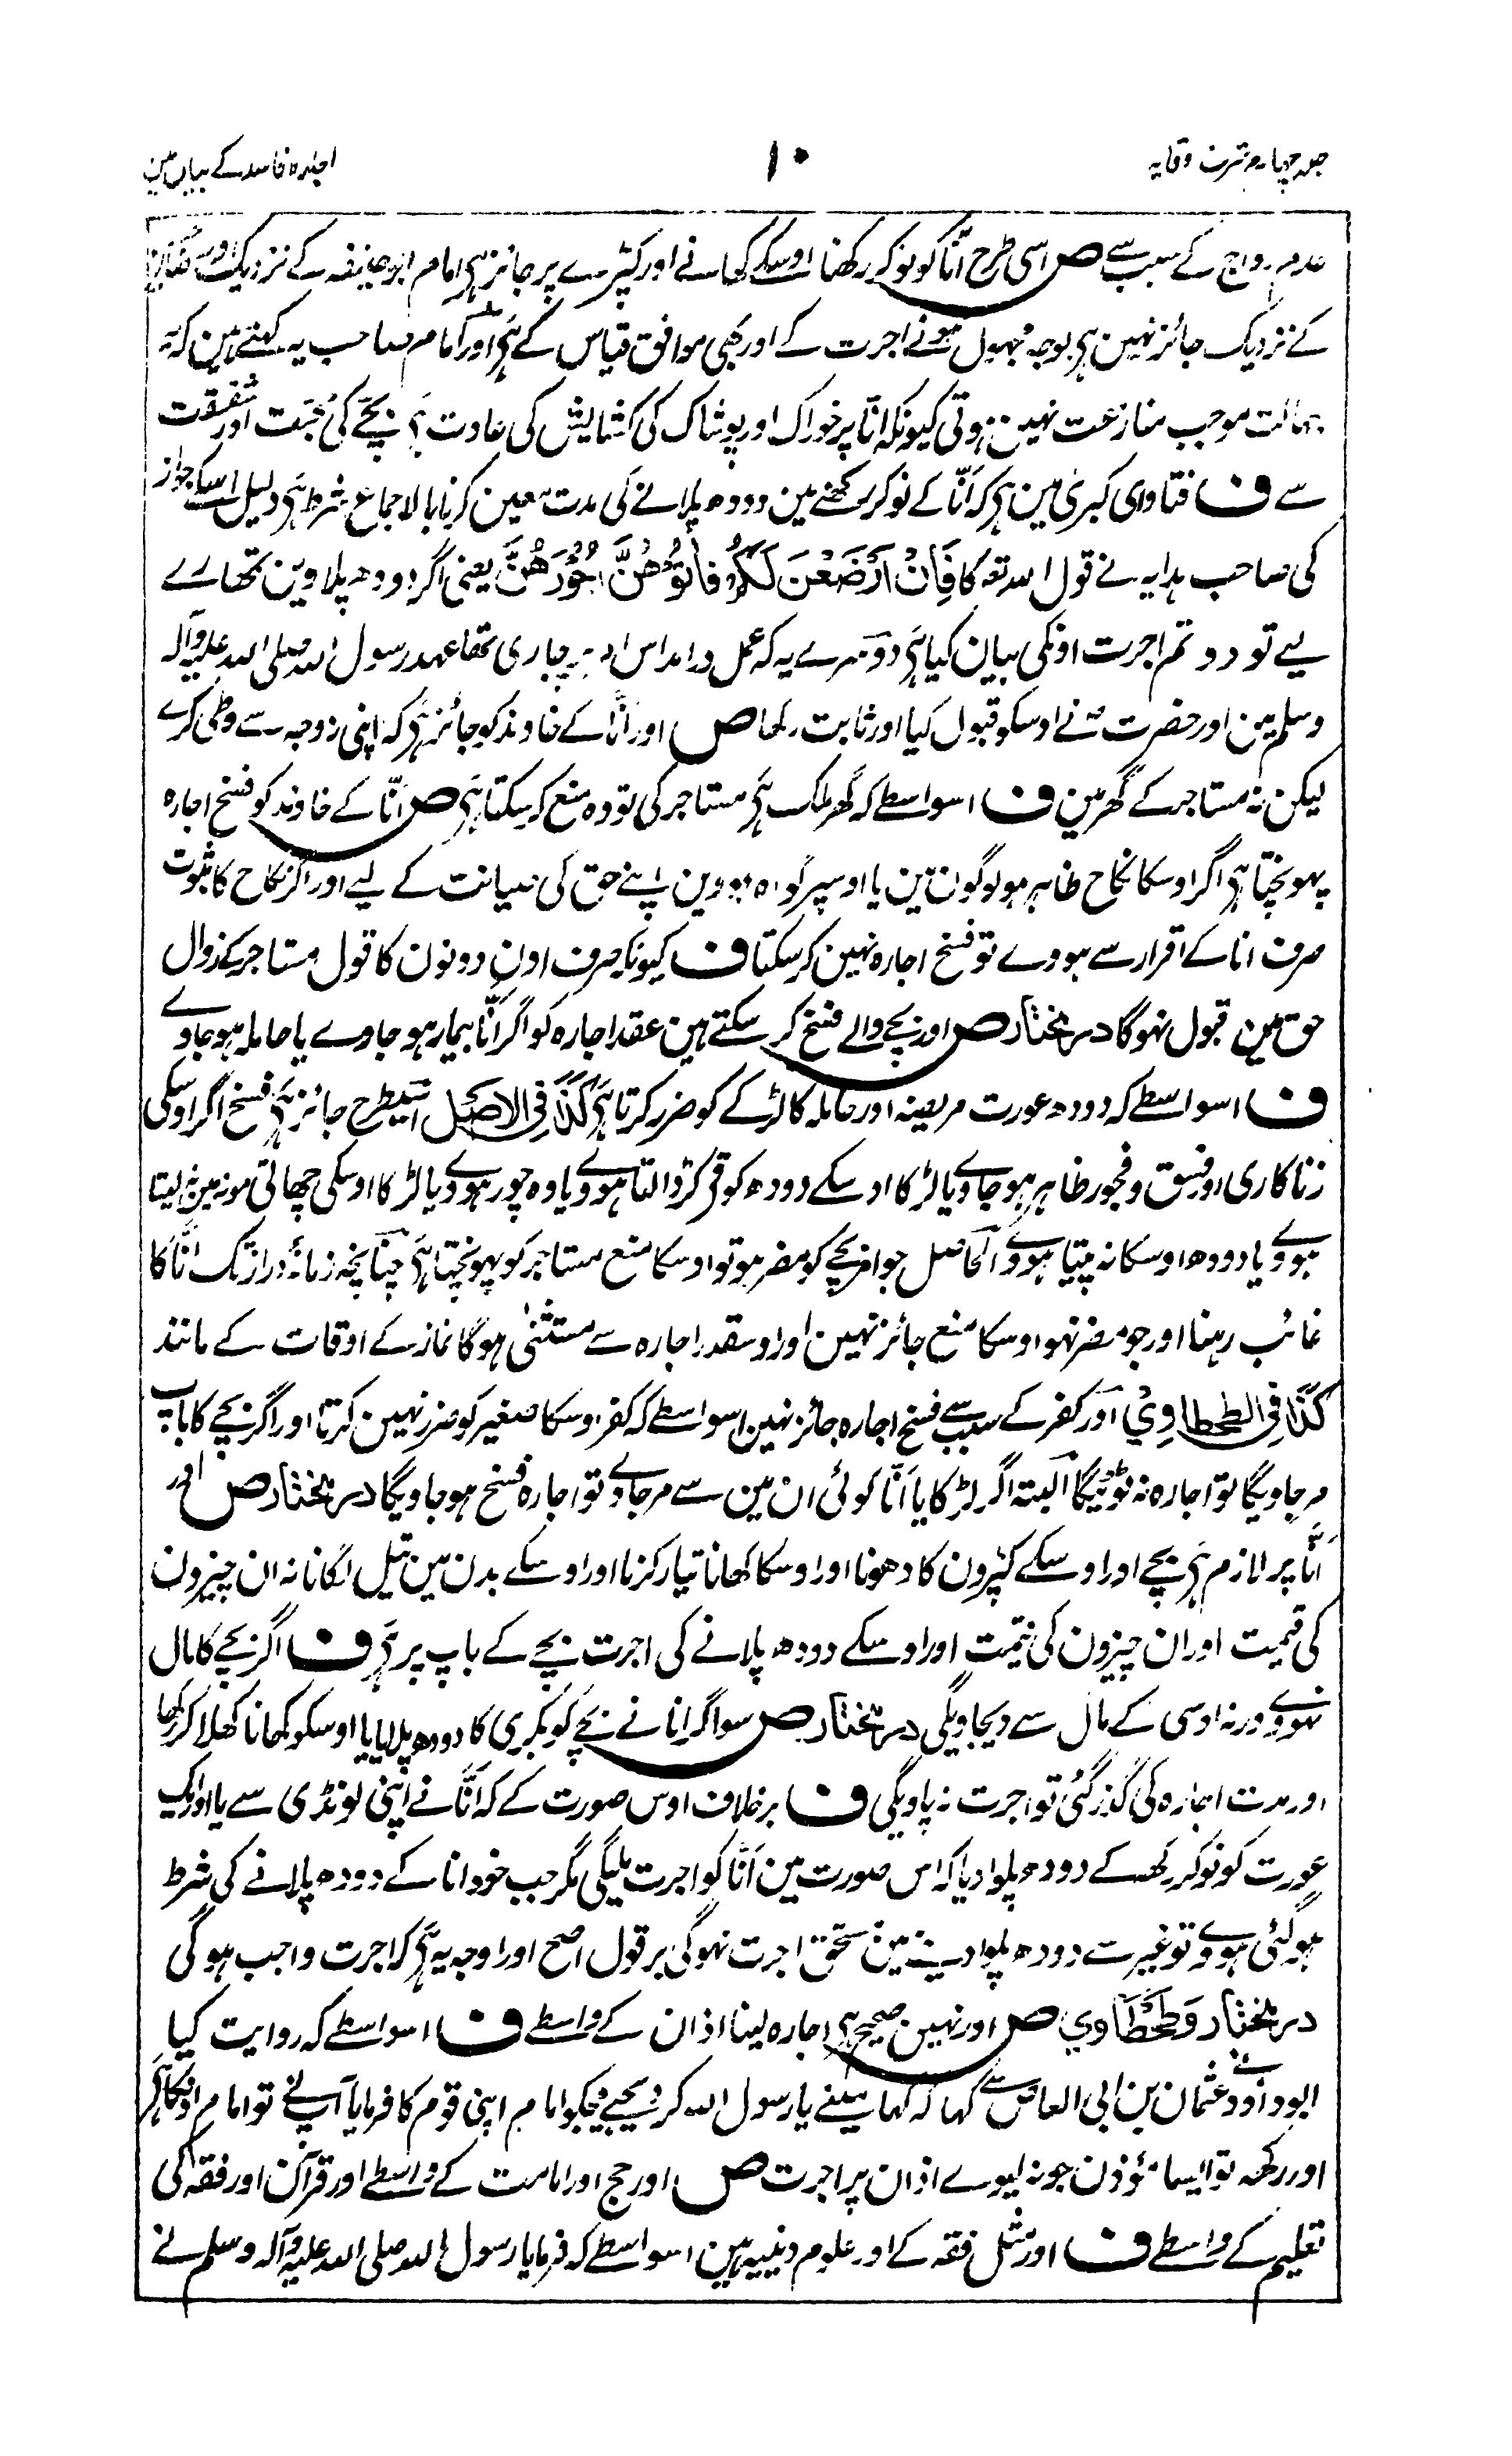 حصہ چہارم شرح وقایہ
۱۰
اجارہ فاسد کے بیان مین
عدم رواج کے سبب سے ص اسی طرح انّا کو نوکر رکھنا اوسکے کھانے اور کپڑے پر جائز ہی امام ابو حنیفہ کے نزدیک اور صاحبین
کے نزدیک جائز نہین ہی بوجہ مجہول ہونے اجرت کے اور یہی موافق قیاس کے ہی اور امام صاحب یہ کہتے ہین کہ یہ
جہالت موجب منازعت نہین ہوتی کیونکہ انّا پر خوراک اور پوشاک کی کشایش کی عادت ہی بچے کی محبت اور شفقت
سے ف فتاوای کبریٰ مین ہی کہ انّا کے نوکر رکھنے مین دودھ پلانے کی مدت معین کرنا بالاجماع شرط ہی دلیل اسکے جواز
کی صاحب ہدایہ نے قول اللہ تعہ کا فَاِنْ اَرْضَعْنَ لَكُمْ فَاٰتُوْهُنَّ اُجُوْرَهُنَّ یعنی اگر دودھ پلاوین تمھارے
لیے تو دو تم اجرت اونکی بیان کیا ہی دوسرے یہ کہ عمل درامد اس امر پر جاری تھا عہد رسول اللہ صلی اللہ علیہ وآلہ
وسلم مین اور حضرت نے اوسکو قبول کیا اور ثابت رکھا ص اور انّا کے خاوند کو جائز ہی کہ اپنی زوجہ سے وطی کرے
لیکن نہ مستاجر کے گھر مین ف اسواسطے کہ گھر ملک ہی مستاجر کی تو وہ منع کر سکتا ہی ص انّا کے خاوند کو فسخ اجارہ
پہونچتا ہی اگر اوسکا نکاح ظاہر ہو لوگون مین یا اوسپر گواہ ہووین اپنے حق کی صیانت کے لیے اور اگر نکاح کا ثبوت
صرف انا کے اقرار سے ہووے تو فسخ اجارہ نہین کر سکتا ف کیونکہ صرف اون دونون کا قول مستاجر کے زوال
حق مین قبول نہوگا در مختار ص اور بچے والے فسخ کر سکتے ہین عقد اجارہ کو اگر انّا بیمار ہو جاوے یا حاملہ ہو جاوے
ف اسواسطے کہ دودھ عورت مریضہ اور حاملہ کا لڑکے کو ضرر کرتا ہی کذا فی الاصل اسیطرح جائز ہی فسخ اگر اوسکی
زنا کاری اور فسق و فجور ظاہر ہو جاوے یا لڑکا اوسکے دودھ کو قی کر ڈالتا ہووے یا وہ چور ہووے یا لڑکا اوسکی چھاتی مونہ مین نہ لیتا
ہووے یا دودھ اوسکا نہ پیتا ہووے الحاصل جو امر بچے کو مضر ہو تو اوسکا منع مستاجر کو پہونچتا ہی چنانچہ زمانۂ دراز تک انّا کا
غائب رہنا اور جو مضر نہو اوسکا منع جائز نہین اور اوسقدر اجارہ سے مستثنیٰ ہوگا نماز کے اوقات کے مانند
کذا فی الطحطاوی اور کفر کے سبب سے فسخ اجارہ جائز نہین اسواسطے کہ کفر اوسکا صغیر کو ضرر نہین کرتا اور اگر بچے کا باپ
مر جاویگا تو اجارہ نہ ٹوٹیگا البتہ اگر لڑکا یا انّا کوئی ان مین سے مر جاوے تو اجارہ فسخ ہو جاویگا در مختار ص اور
انّا پر لازم ہی بچے اور اوسکے کپڑون کا دھونا اور اوسکا کھانا تیار کرنا اور اوسکے بدن مین تیل لگانا نہ ان چیزون
کی قیمت اور ان چیزون کی قیمت اور اوسکے دودھ پلانے کی اجرت بچے کے باپ پر ہی ف اگر بچے کا مال
نہووے ورنہ اوسی کے مال سے دیجاویگی در مختار ص سو اگر انا نے بچے کو بکری کا دودھ پلایا یا اوسکو کھانا کھلا کر رکھا
اور مدت اجارہ کی گذر گئی تو اجرت نہ پاویگی ف برخلاف اوس صورت کے کہ انّا نے اپنی لونڈی سے یا اور ایک
عورت کو نوکر رکھ کے دودھ پلوا دیا کہ اس صورت مین انّا کو اجرت ملیگی مگر جب خود انا کے دودھ پلانے کی شرط
ہو گئی ہووے تو غیر سے دودھ پلوا دینے مین مستحق اجرت نہوگی بر قول اصح اور اوجہ یہ ہی کہ اجرت واجب ہوگی
در مختار و طحطاوی ص اور نہین صحیح ہی اجارہ لینا اذان کے واسطے ف اسواسطے کہ روایت کیا
ابو داؤد نے عثمان بن ابی العاص سے کہا کہ کہا مینے یا رسول اللہ کر دیجیے مجکو امام اپنی قوم کا فرمایا آپ نے تو امام اونکا ہی
اور رکھ تو ایسا مؤذن جو نہ لیوے اذان پر اجرت ص اور حج اور امامت کے واسطے اور قرآن اور فقہ کی
تعلیم کے واسطے ف اور مثل فقہ کے اور علوم دینیہ ہین اسواسطے کہ فرمایا رسول اللہ صلی اللہ علیہ وآلہ وسلم نے